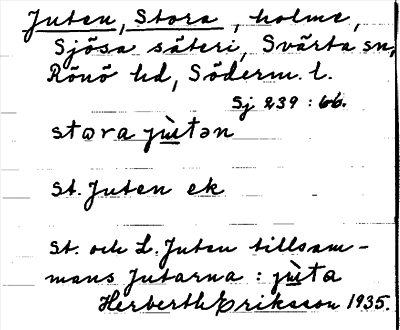 Juten, Stora, holme,
Sjösa säteri, Svärta sn,
Rönö hd, Söderm. l.
Sj 239 : 66.
stora jùtən
St. Juten ek
St. och L. Juten tillsam-
mans Jutarna : jùta
Herberth Eriksson 1935.